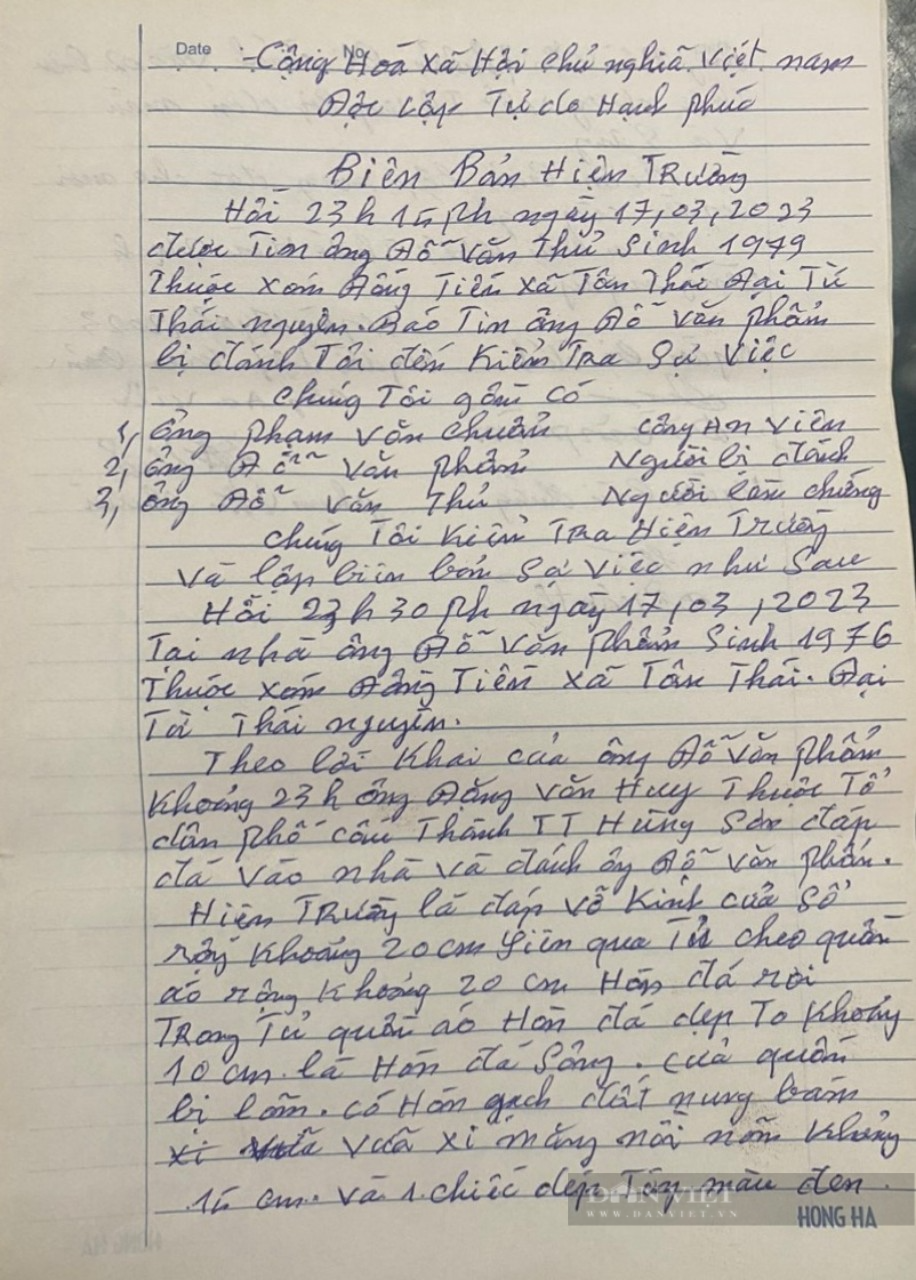 Date No
Cộng Hoá Xã Hội Chủ nghiã Việt nam
Độc lập Tự do Hạnh phúc
Biên Bản Hiện Trường
Hồi 23h 15 ph ngày 17,03,2023
được Tin ông Đỗ Văn Thử Sinh 1979
Thuộc xóm Đồng Tiến xã Tân Thái Đại Từ
Thái nguyên. Báo Tin ông Đỗ Văn phẩm
bị đánh Tôi đến Kiểm Tra Sự Việc
chúng Tôi gồm có
1, ông phạm văn chuẩn công An viên
2, ông Đỗ văn phẩm Người bị đánh
3, ông Đỗ văn Thử Người làm chứng
chúng Tôi Kiểm Tra Hiện Trường
Và lập biên bản Sự Việc như Sau
Hồi 23h 30 ph ngày 17,03,2023
Tại nhà ông Đỗ Văn phẩm Sinh 1976
Thuộc xóm Đồng Tiến xã Tân Thái. Đại
Từ Thái nguyên.
Theo lời Khai của ông Đỗ văn phẩm
Khoảng 23h ông Đặng văn Huy Thuộc Tổ
dân phố cầu Thành TT Hùng Sơn đáp
đá vào nhà và đánh ông Đỗ văn phẩm.
Hiện Trường là đáp vỡ Kính cửa Sổ
rộng Khoảng 20 cm qua Tủ cheo quần
áo rộng Khoảng 20 cm Hòn đá rơi
Trong Tủ quần áo Hòn đá dẹp To Khoảng
10 cm là Hòn đá Sông. cửa quấn
bị lõm. có Hòn gạch đất nung bám
xi vữa xi măng nồi Khoảng
15 cm. và 1 chiếc dép Tông màu đen.
DÂN VIỆT
WWW.DANVIET.VN
HONG HA